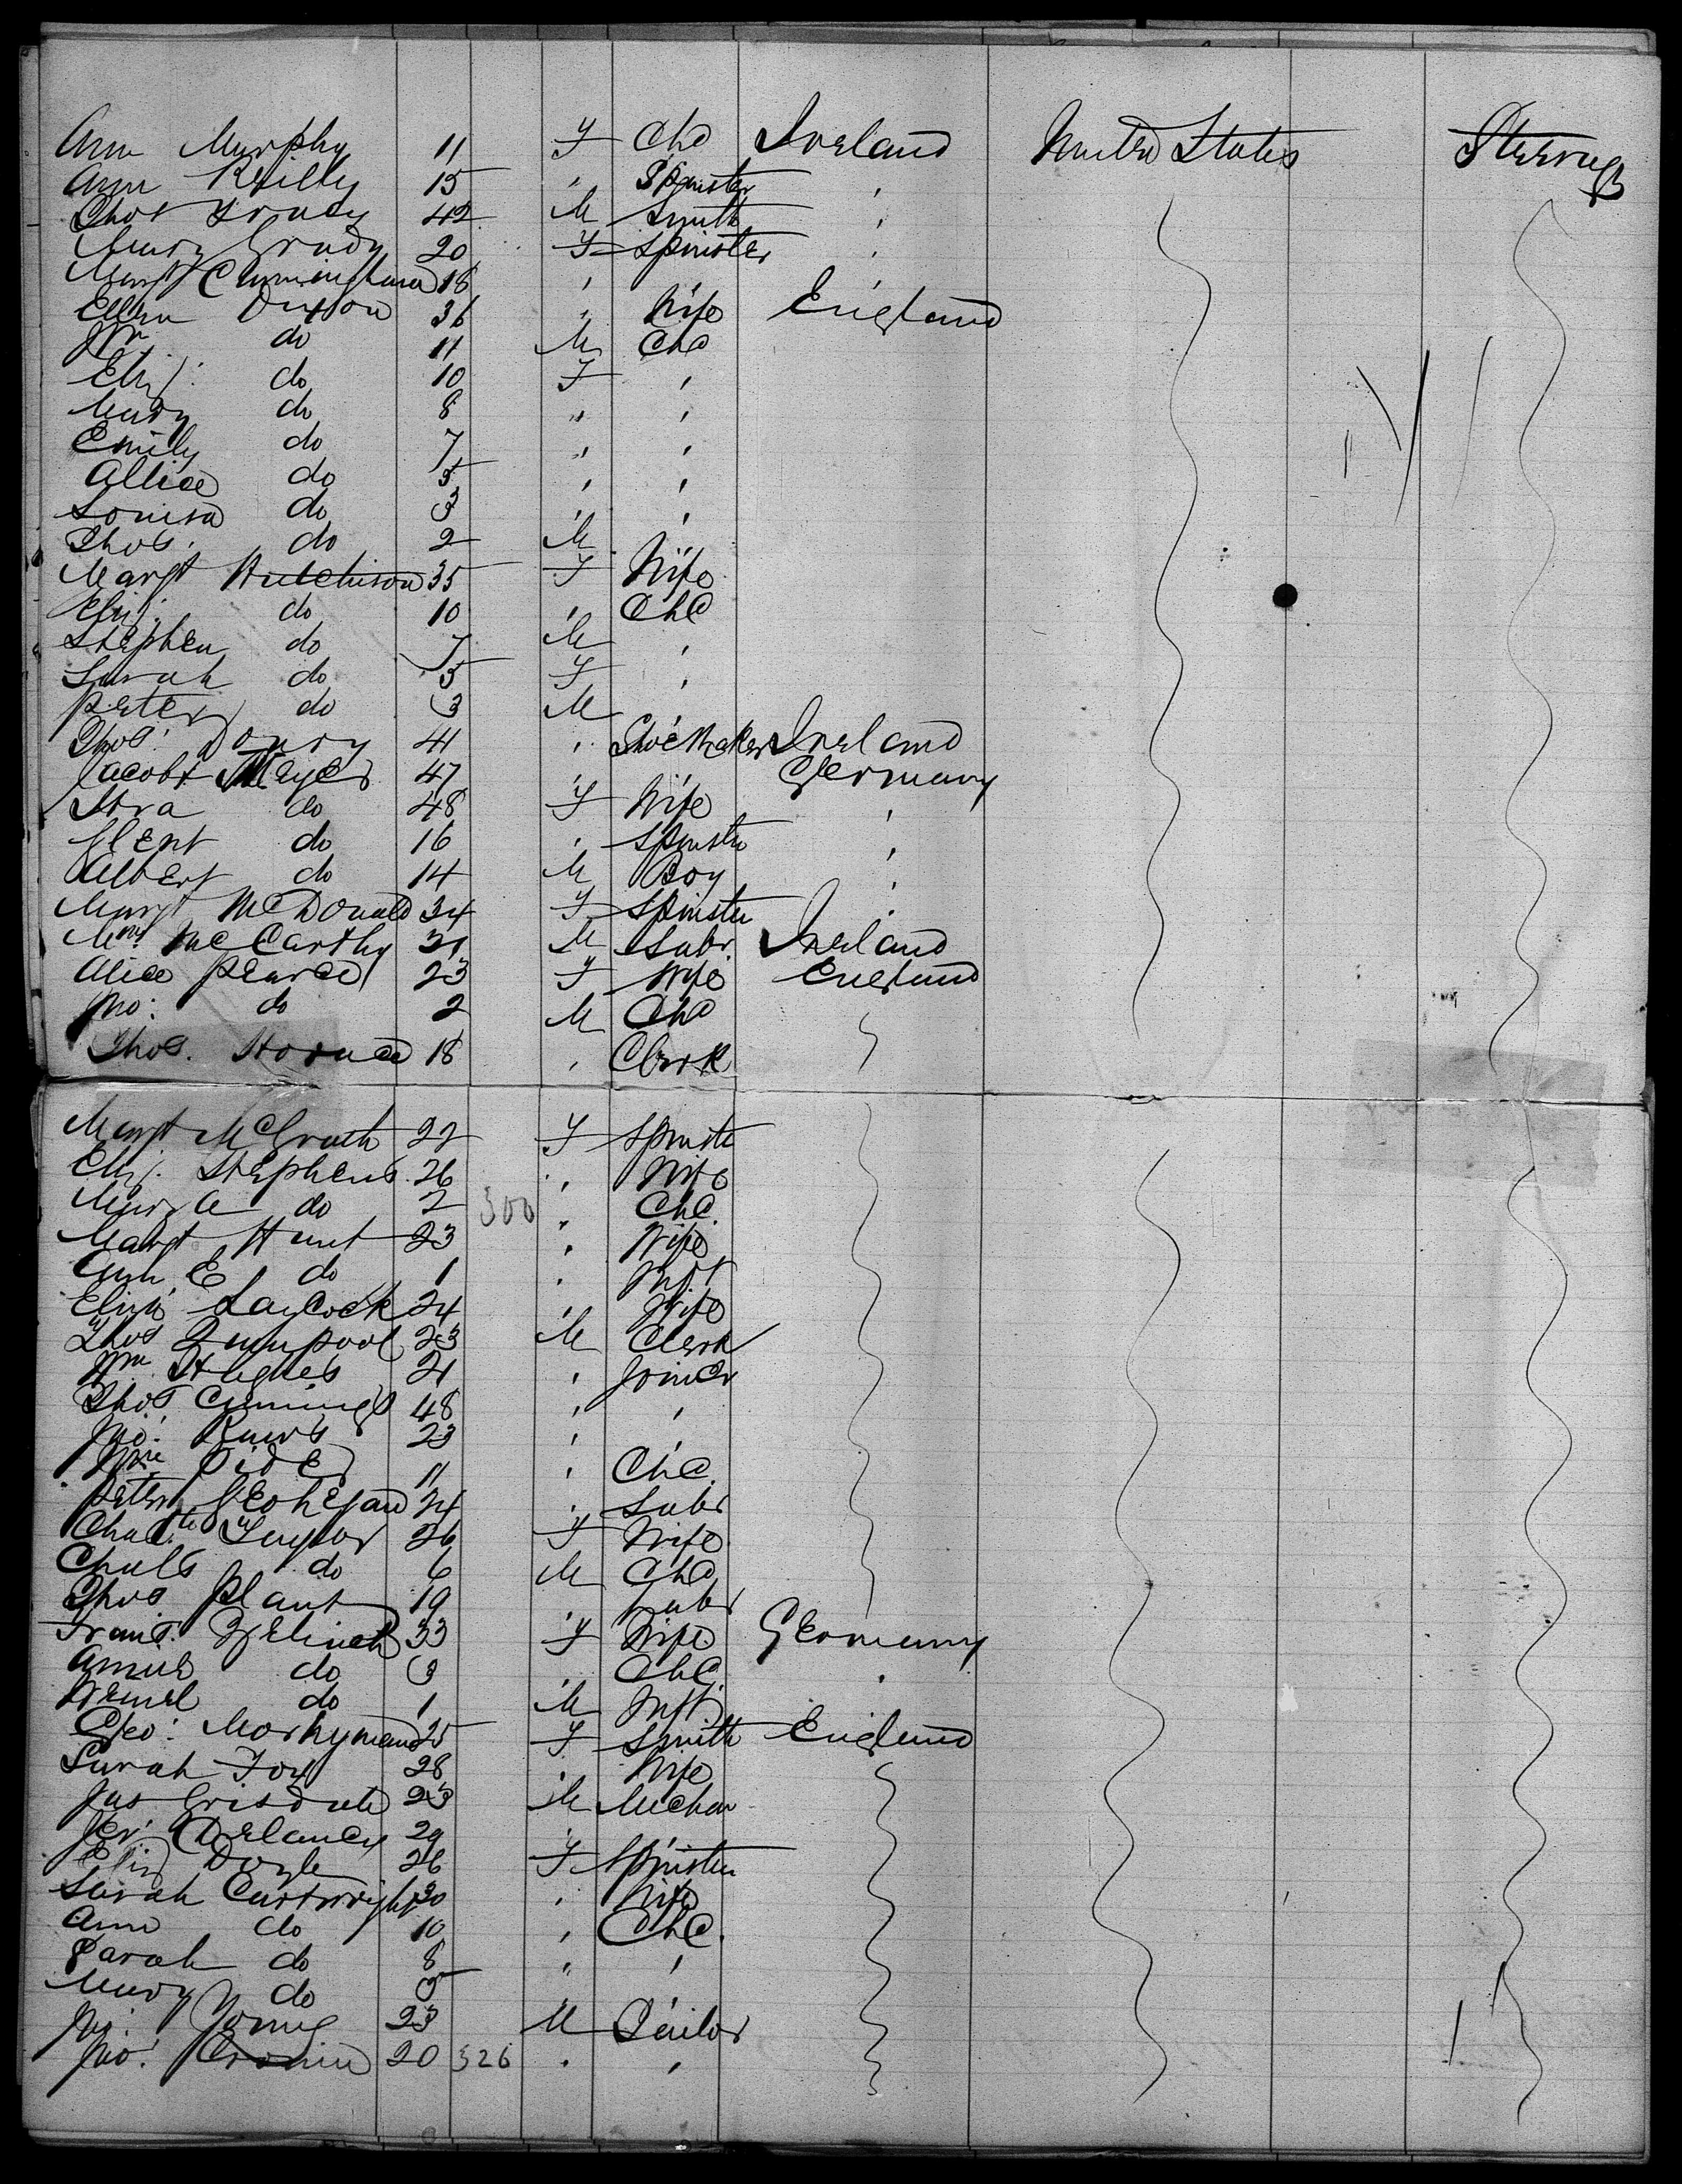 Ann Murphy 11 F Chd Ireland United States Steerage
Ann Reilly 15 " Spinster "
Thos Grady 42 M Smith "
Mary Grady 20 F Spinster "
Margt Cunningham 18 " "
Ellen Dixon 36 " Wife England
Wm do 11 M Chd
Eliz: do 10 F "
Mary do 8 " "
Emily do 7 " "
Allice do 5 " "
Louisa do 3 " "
Thos. do 2 M "
Margt Hutchison 35 F Wife
Eliz: do 10 " Chd
Stephen do 7 M "
Sarah do 5 F "
Peter do 3 M "
Thos: 41 " Shoemaker Ireland
Jacobt Meyer 47 " " Germany
do 48 F Wife "
do 16 " Spinster "
Albert do 14 M Boy "
Margt McDonald 34 F Spinster "
McCarthy 31 M Labr. Ireland
Alice Pearce 23 F Wife England
Jno: do 2 M Chd
Thos. Horace 18 " Clerk
Margt McGrath 22 F Spinster
Eliz: Stephens 26 " Wife
Mary A do 2 300 " Chd.
Margt Hunt 23 " Wife
Ann E do 1 " Inft
Eliz: Laycock 24 " Wife
Thos 23 M Clerk
Wm Hughes 21 " Joiner
Thos Cummings 48 " "
Jno: 23 " "
Wm 11 " Chd.
Peter Geohegan 24 " Labr
Chatte Taylor 26 F Wife
Chals do 6 M Chd
Thos Plant 19 " Labr
33 F Wife Germany
do 3 " Chd "
do 1 M Inft
Geo: 25 F Smith England
Sarah Fox 28 " Wife
Jas Grisdale 23 M Mechan
Jer: Delaney 29 " "
Eliz Doyle 26 F Spinster
Sarah Cartwright 30 " Wife
Ann do 10 " Chd.
Sarah do 8 " "
Mary do 5
Jno: Young 23 M Tailor
Jno: Cronin 20 326 " "